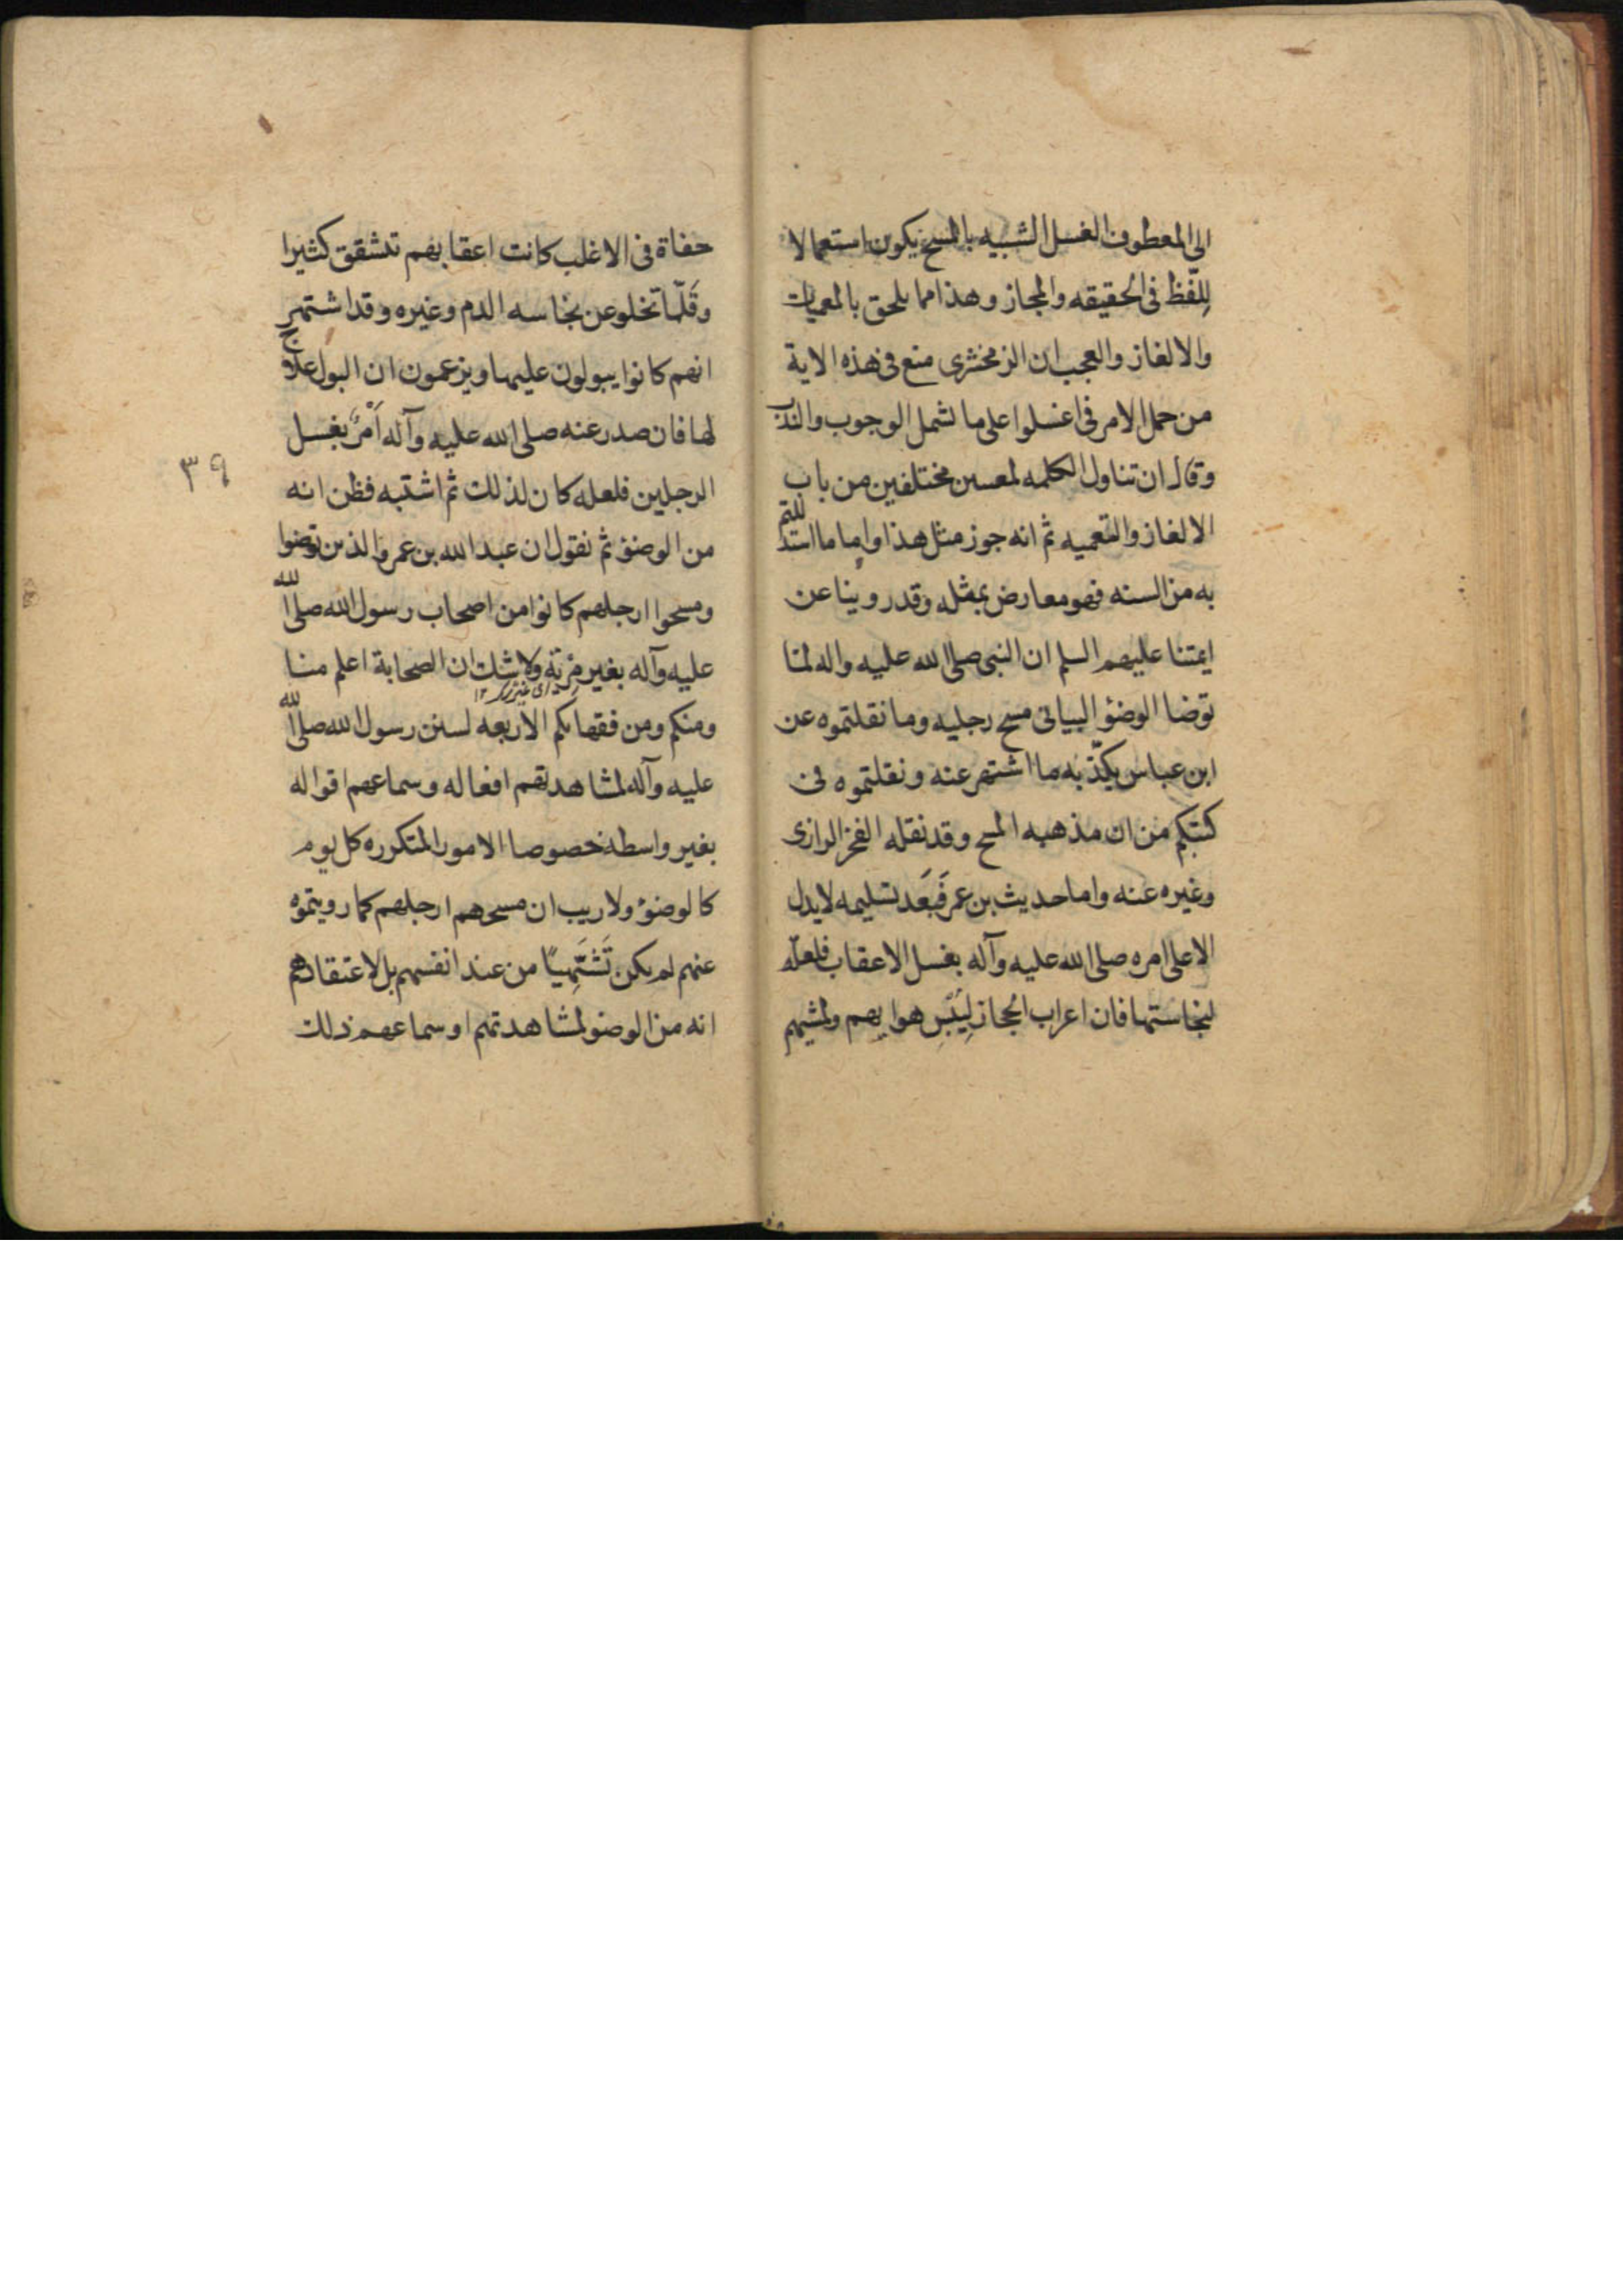 الى المعطوف الغسل الشبيه بالمسح يكون استعمالا
لِلّفظ فى الحقيقه والمجاز وهذا مما يلحق بالمعميات
والالغاز والعجب ان الزمخشرى منع فى هذه الاية
من حمل الامر فى اغسلوا على ما لشمل الوجوب والندب
وقال ان تناول الكلمه لمعسين مختلفين من باب
الالغاز والتعميه ثم انه جوز مثل هذا واما ما استدللتم
به من السنه فهو معارض بمثله وقد روينا عن
ايمتنا عليهم السلم ان النبى صلى الله عليه واله لما
توضا الوضؤ البيانى مسح رجليه وما نقلتموه عن
ابن عباس يكذّبه ما اشتهر عنه ونقلتموه فى
كتبكم من ان مذهبه المسح وقد نقله الفخر الرازى
وغيره عنه واما حديث بن عمر فَبَعَد تسليمه لا يدل
الا على امره صلى الله عليه وآله بغسل الاعقاب فلعلّه
لنجاستها فان اعراب الحجاز لِيُبْسِ هوايهم ولمشيهم
حفاة فى الاغلب كانت اعقابهم تتشقق كثيرا
وقَلّما تخلو عن نجاسه الدم وغيره وقد اشتهر
انهم كانوا يبولون عليها ويزعمون ان البول علاج
لها فان صدر عنه صلى الله عليه وآله اَمْرٌ بغسل
الرجلين فلعله كان لذلك ثم اشتبه فظن انه
من الوضؤ ثم نقول ان عبد الله بن عمر والذين توضوا
ومسحوا ارجلهم كانوا من اصحاب رسول الله صلى الله
عليه وآله بغير مِرْيَة ولا شك ان الصحابة اعلم منا
ومنكم ومن فقهايكم الاربعه لسنن رسول الله صلى الله
عليه وآله لمشاهدتهم افعاله وسماعهم اقواله
بغير واسطه خصوصا الامور المتكرره كل يوم
كالوضؤ ولا ريب ان مسحهم ارجلهم كما رويتموه
عنهم لم يكن تَشَهّيًا من عند انفسهم بل لاعتقادهم
انه من الوضو لمشاهدتهم او سماعهم ذلك
٣٩